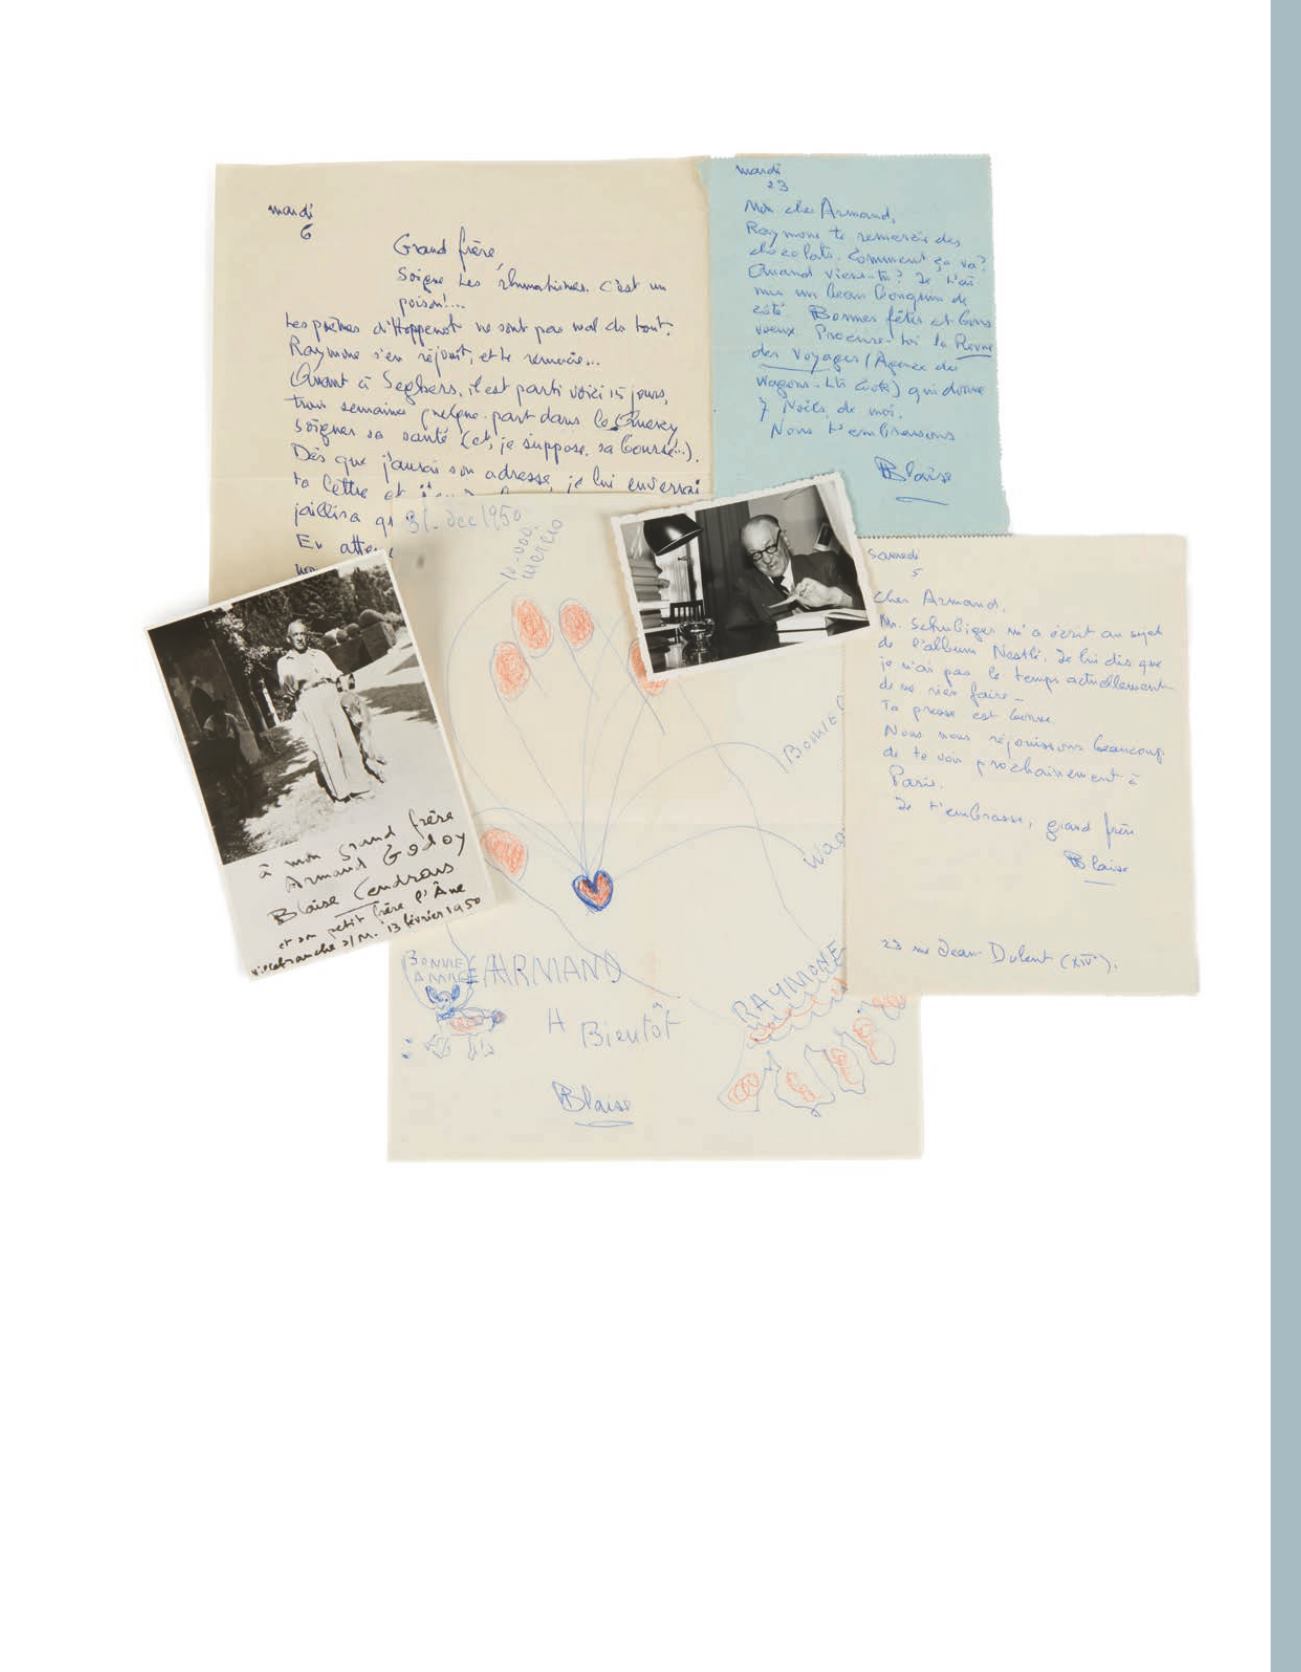 mardi
6
Grand frère,
Soigne tes rhumatismes. C'est un
poison!...
Les poèmes d'Hoppenot ne sont pas mal du tout.
Raymone s'en réjouit, et te remercie...
Quant à Seghers, il est parti voici 15 jours,
trois semaines quelque part dans le Quercy
soigner sa santé (et, je suppose, sa bourse...).
Dès que j'aurai son adresse, je lui enverrai
ta lettre et
jaillira
En atte
mardi
23
Mon cher Armand,
Raymone te remercie des
chocolats. Comment ça va?
Quand viens-tu? Je t'ai
mis un beau bouquin de
côté. Bonnes fêtes et bons
voeux. Procure-toi la Revue
des Voyages (Agence des
Wagons-Lits Cook) qui donne
7 Noëls de moi.
Nous t'embrassons
Blaise
31. déc 1950
10.000.
mercis
Bonne
BONNE
ANNÉE
ARMAND
RAYMONE
A Bientôt
Blaise
à mon grand frère
Armand Godoy
Blaise Cendrars
et son petit frère l'Âne
Villefranche s/M. 13 février 1950
Samedi
5
Cher Armand,
Mr. Schubiger m'a écrit au sujet
de l'album Nestlé. Je lui dis que
je n'ai pas le temps actuellement
de ne rien faire -
Ta presse est bonne.
Nous nous réjouissons beaucoup
de te voir prochainement à
Paris.
Je t'embrasse, grand frère
Blaise
23 rue Jean Dolent (XIVe).